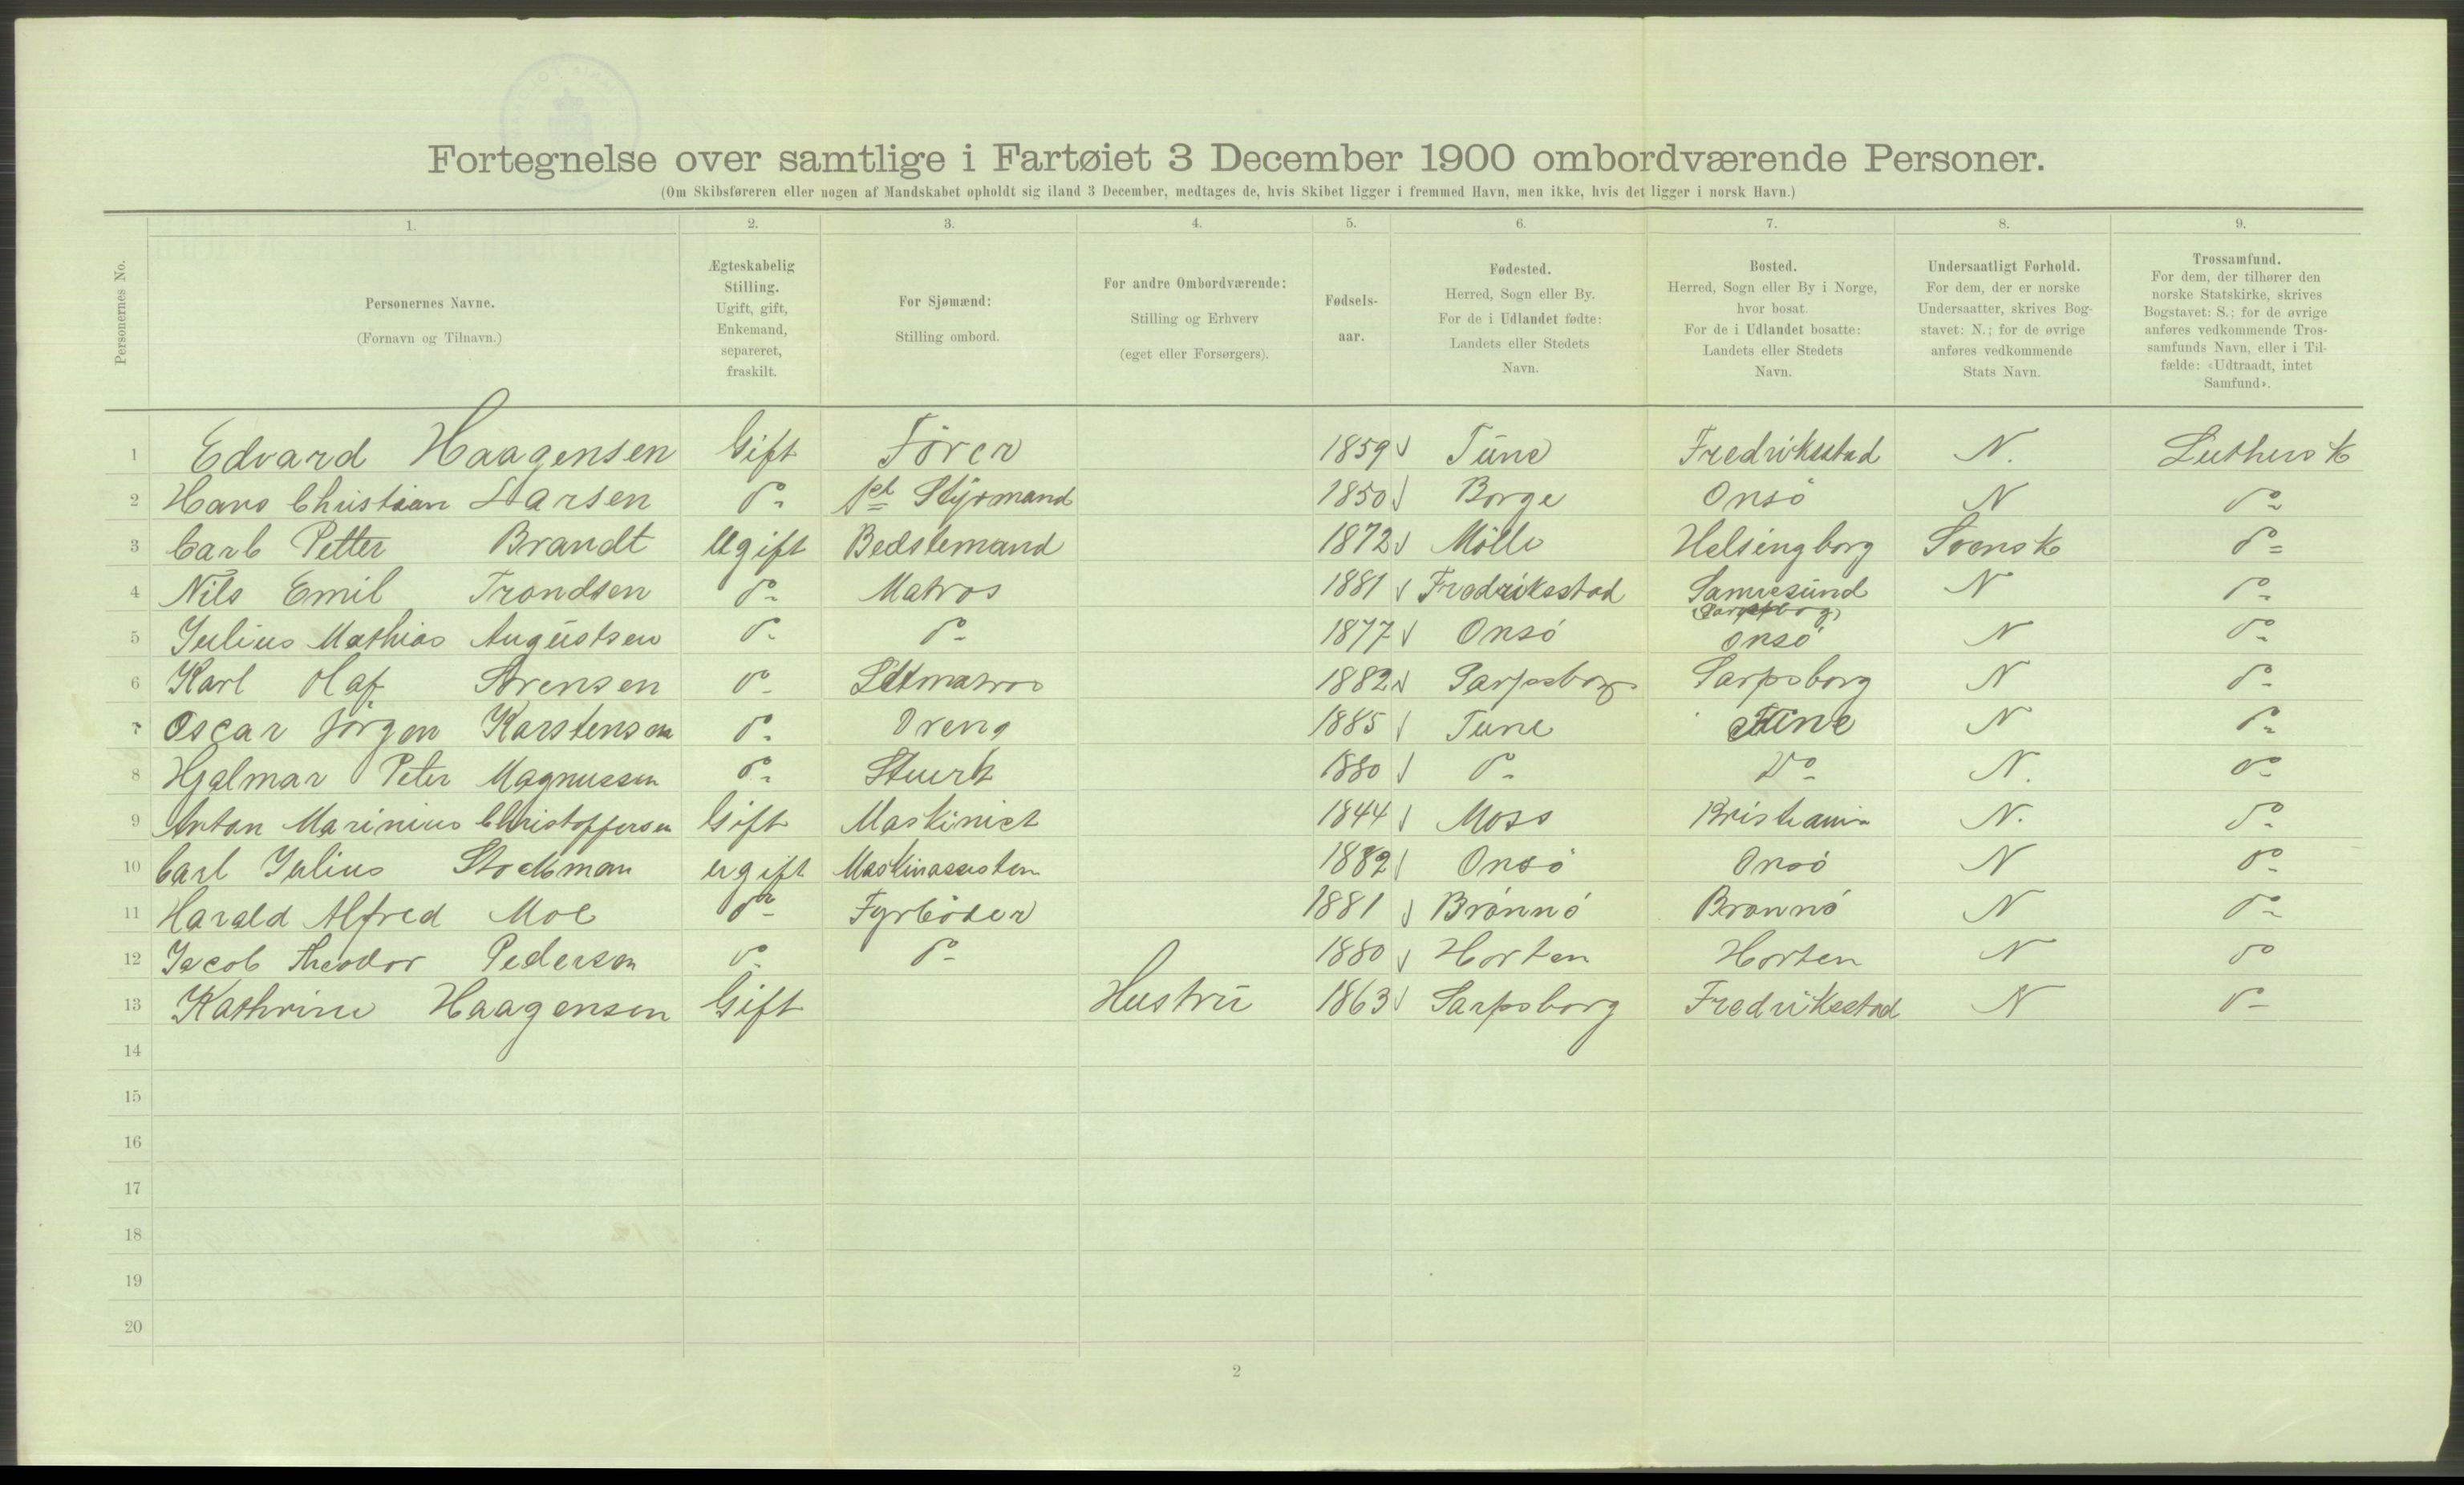 Fortegnelse over samtlige i Fartøiet 3 December 1900 ombordværende Personer.
(Om Skibsføreren eller nogen af Mandskabet opholdt sig iland 3 December, medtages de, hvis Skibet ligger i fremmed Havn, men ikke, hvis det ligger i norsk Havn.)
Personernes No.
1. 2. 3. 4. 5. 6. 7. 8. 9.
Personernes Navne.
(Fornavn og Tilnavn.)
Ægteskabelig
Stilling.
Ugift, gift,
Enkemand,
separeret,
fraskilt.
For Sjømænd:
Stilling ombord.
For andre Ombordværende:
Stilling og Erhverv
(eget eller Forsørgers).
Fødsels-
aar.
Fødested.
Herred, Sogn eller By.
For de i Udlandet fødte:
Landets eller Stedets
Navn.
Bosted.
Herred, Sogn eller By i Norge,
hvor bosat.
For de i Udlandet bosatte:
Landets eller Stedets
Navn.
Undersaatligt Forhold.
For dem, der er norske
Undersaatter, skrives Bog-
stavet: N.; for de øvrige
anføres vedkommende
Stats Navn.
Trossamfund.
For dem, der tilhører den
norske Statskirke, skrives
Bogstavet: S.; for de øvrige
anføres vedkommende Tros-
samfunds Navn, eller i Til-
fælde: «Udtraadt, intet
Samfund».
1 Edvard Haagensen Gift Förer 1859 Tune Fredriksstad N. Luthersk
2 Hans Christian Larsen do 1st Styrmand 1850 Borge Onsö N do
3 Carl Petter Brandt Ugift Bedstemand 1872 Mölle Helsingborg Svensk do
4 Nils Emil Trondsen do Matros 1881 Fredriksstad N do
5 Julius Mathias Augustsen do do 1877 Onsö Onsö N do
6 Karl Olaf Sörensen do Letmatros 1882 Sarpsborg Sarpsborg N do
7 Oscar Jörgen Karstensen do Dreng 1885 Tune Tune N do
8 Hjalmar Peter Magnussen do Stuert 1880 do Do N. do
9 Anton Marinius Christoffersen Gift Maskinist 1844 Moss Kristiania N. do
10 Carl Julius Stockman ugift Maskinassisten 1882 Onsö Onsö N do
11 Harald Alfred Moe do Fyrböder 1881 Brönnö Brönnö N do
12 Jacob Theodor Pedersen do do 1880 Horten Horten N do
13 Kathrine Haagensen Gift Hustru 1863 Sarpsborg Fredriksstad N do
14
15
16
17
18
19
20
2